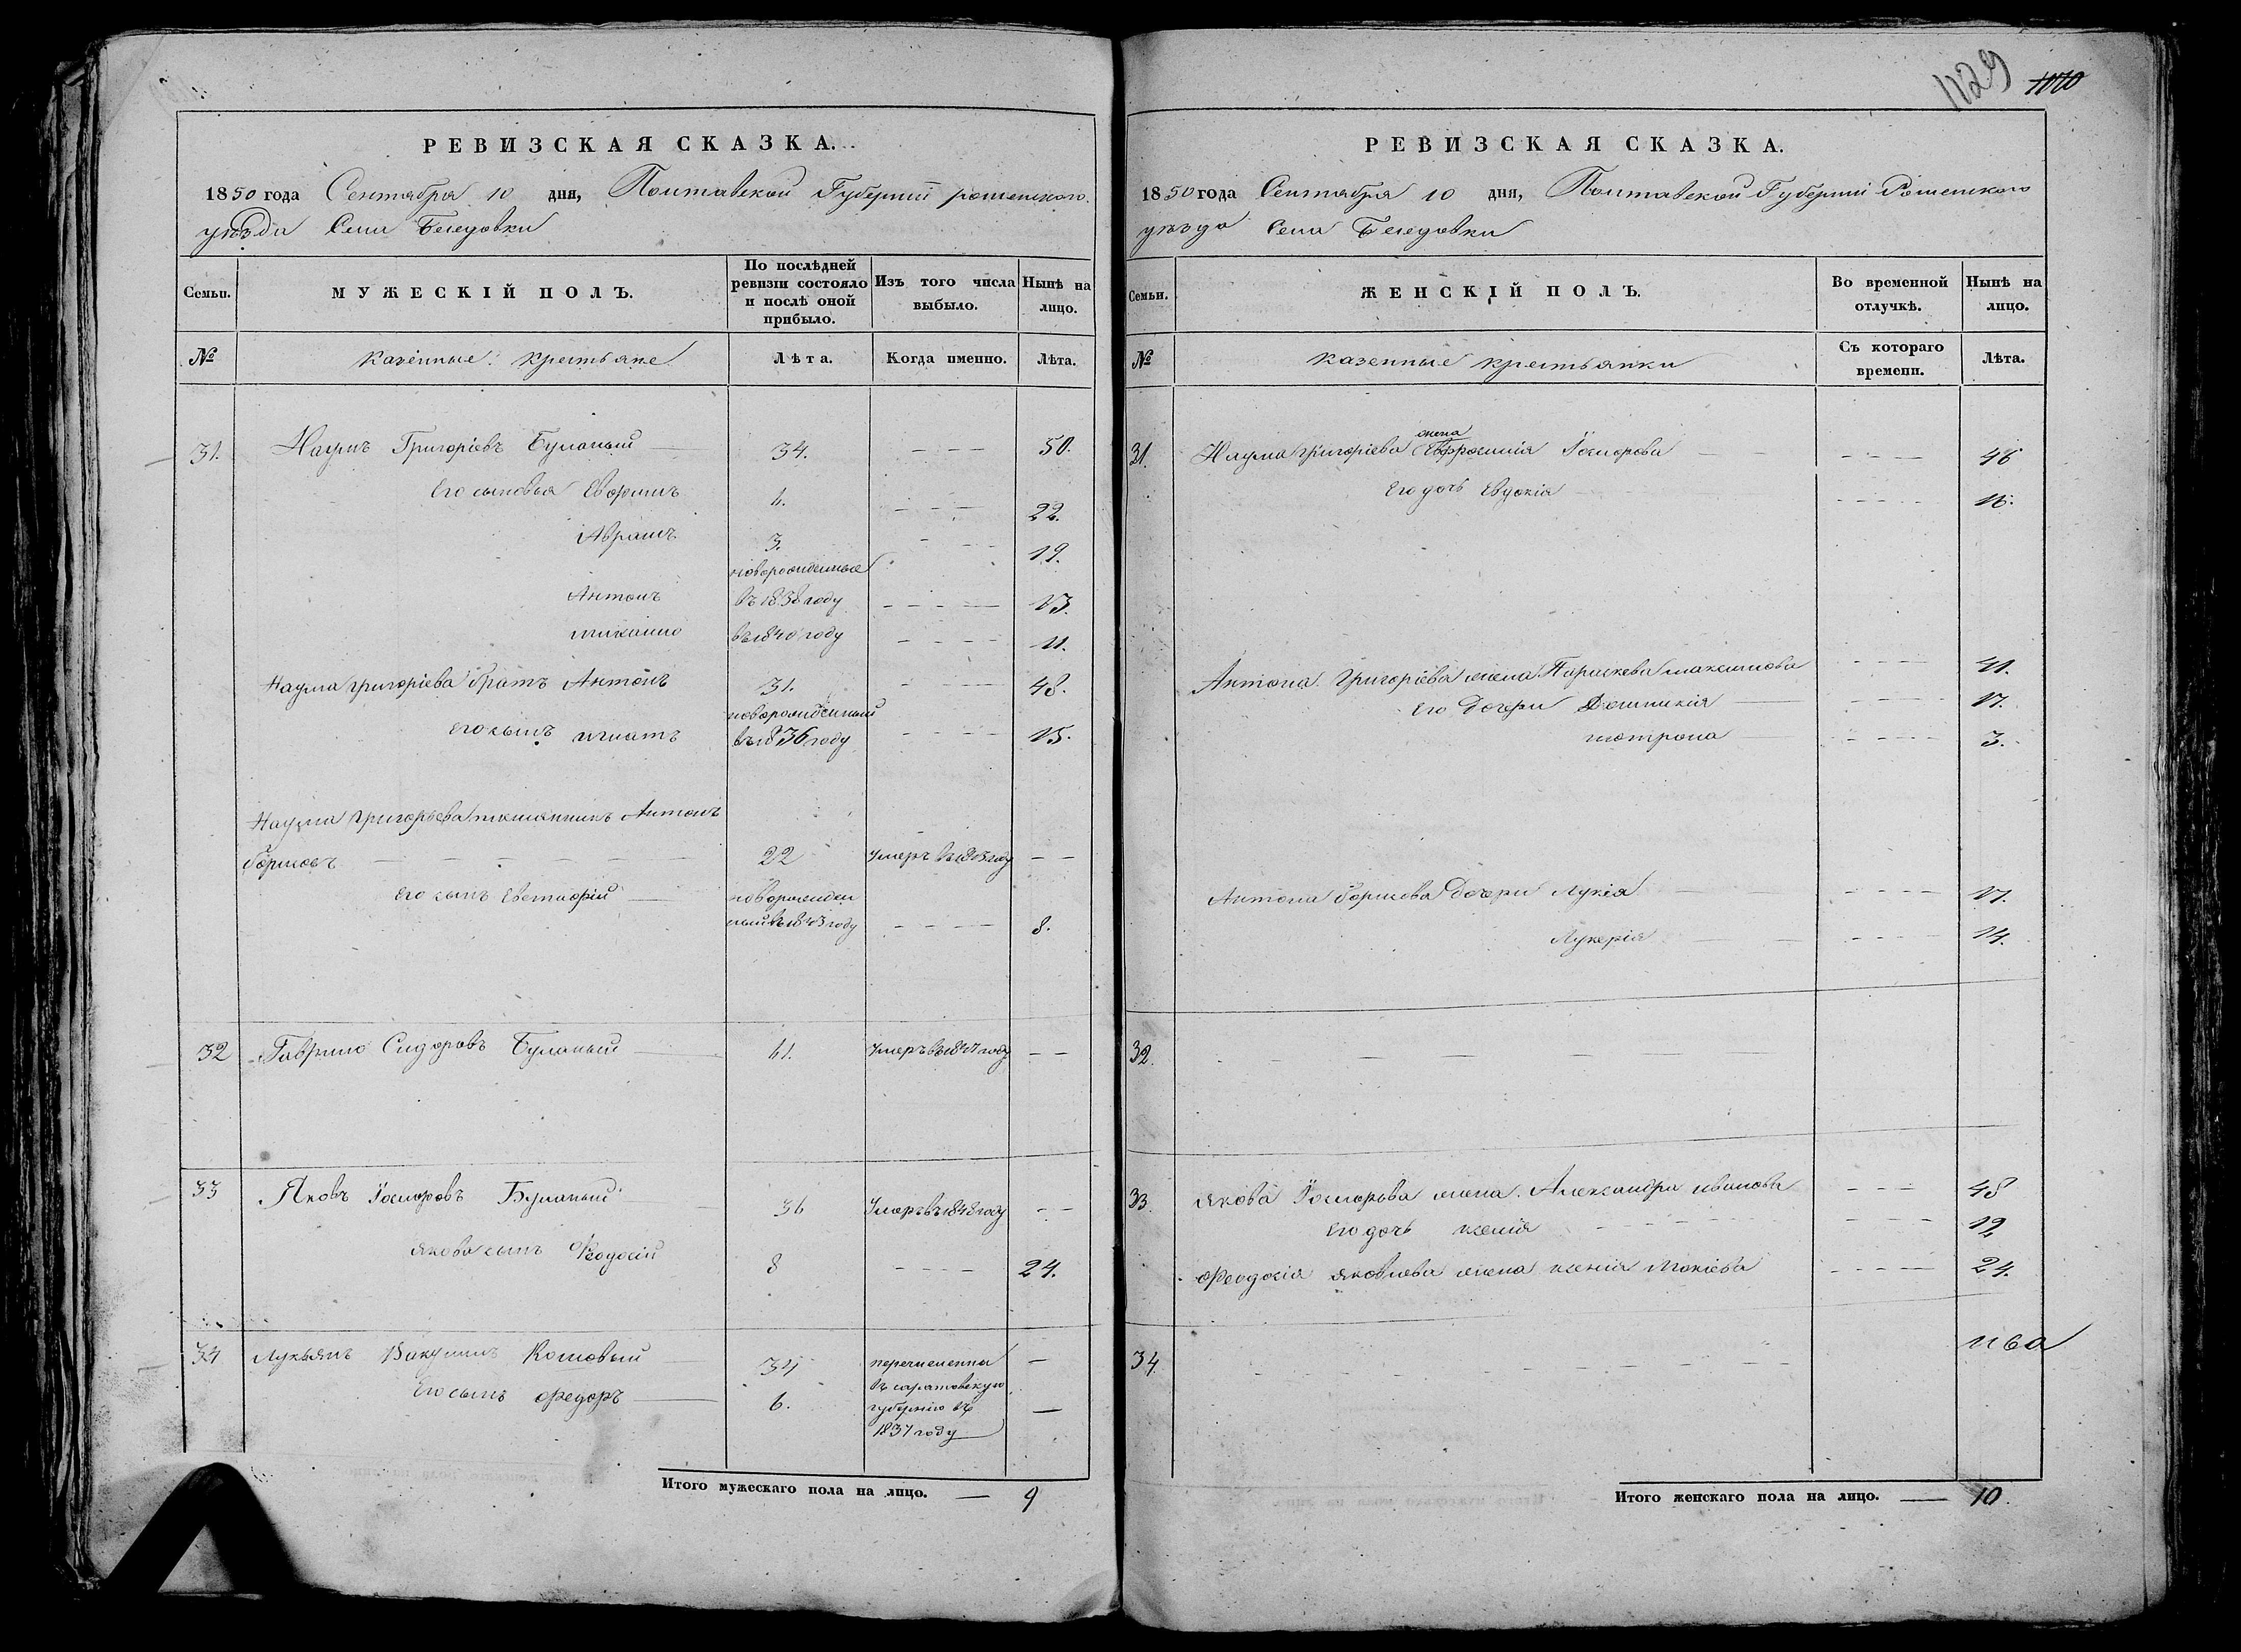 РЕВИЗСКАЯ СКАЗКА.
1850 года Сентября 10 дня, Полтавской Губернии роменского
уѣзда Села Беседовки
Семьи. МУЖЕСКІЙ ПОЛЪ. По послѣдней ревизіи состояло и послѣ оной прибыло. Изъ того числа выбыло. Нынѣ на лицо.
№ казенные крестьяне Лѣта. Когда именно. Лѣта.
31. Наумъ Григоріевъ Буланый 34. 50.
Его сыновья Ефремъ 6. 22.
Абрамъ 3. 19.
новорожденные
Антонъ въ 1838 году 13.
михайло въ 1840 году 11.
Наума григоріева братъ Антонъ 31. 48.
новорожденный
его сынъ игнатъ въ 1836 году 15.
Наума григорьева племянникъ Антонъ
борисовъ 22 умеръ въ 1843 году
его сынъ Евстафій новорожден
ный въ 1843 году 8.
32 Гаврило Сидоровъ Буланый 61. умеръ въ 1847 году
33 Яковъ Ѳедоровъ Буланый 36 Умеръ въ 1848 году
якова сынъ Феодосій 8 24.
34 Лукьянъ Вакулинъ Кошовый 34 перечислены
Его сынъ федоръ 6. въ саратовскую
губернію въ
1837 году
Итого мужескаго пола на лицо. 9
1129 1070
РЕВИЗСКАЯ СКАЗКА.
1850 года Сентября 10 дня, Полтавской Губерніи Роменского
уѣзда Села Беседовки
Семьи. ЖЕНСКІЙ ПОЛЪ. Во временной отлучкѣ. Нынѣ на лицо.
№ казенные крестьянки Съ котораго времени. Лѣта.
жена
31. Наума григоріева Ефросинія 46
Его дочь Евдокія 16.
Антона григоріева жена Параскева максимова 41.
Его дочери Домникія 17.
мотрона 3.
Антона борисова дочери Лукія 17.
Лукерія 14.
32.
33. якова жена Александра иванова 48
Его дочь ксенія 19
феодосія яковлева жена ксенія Мокіева 24.
34.
Итого женскаго пола на лицо. 10.